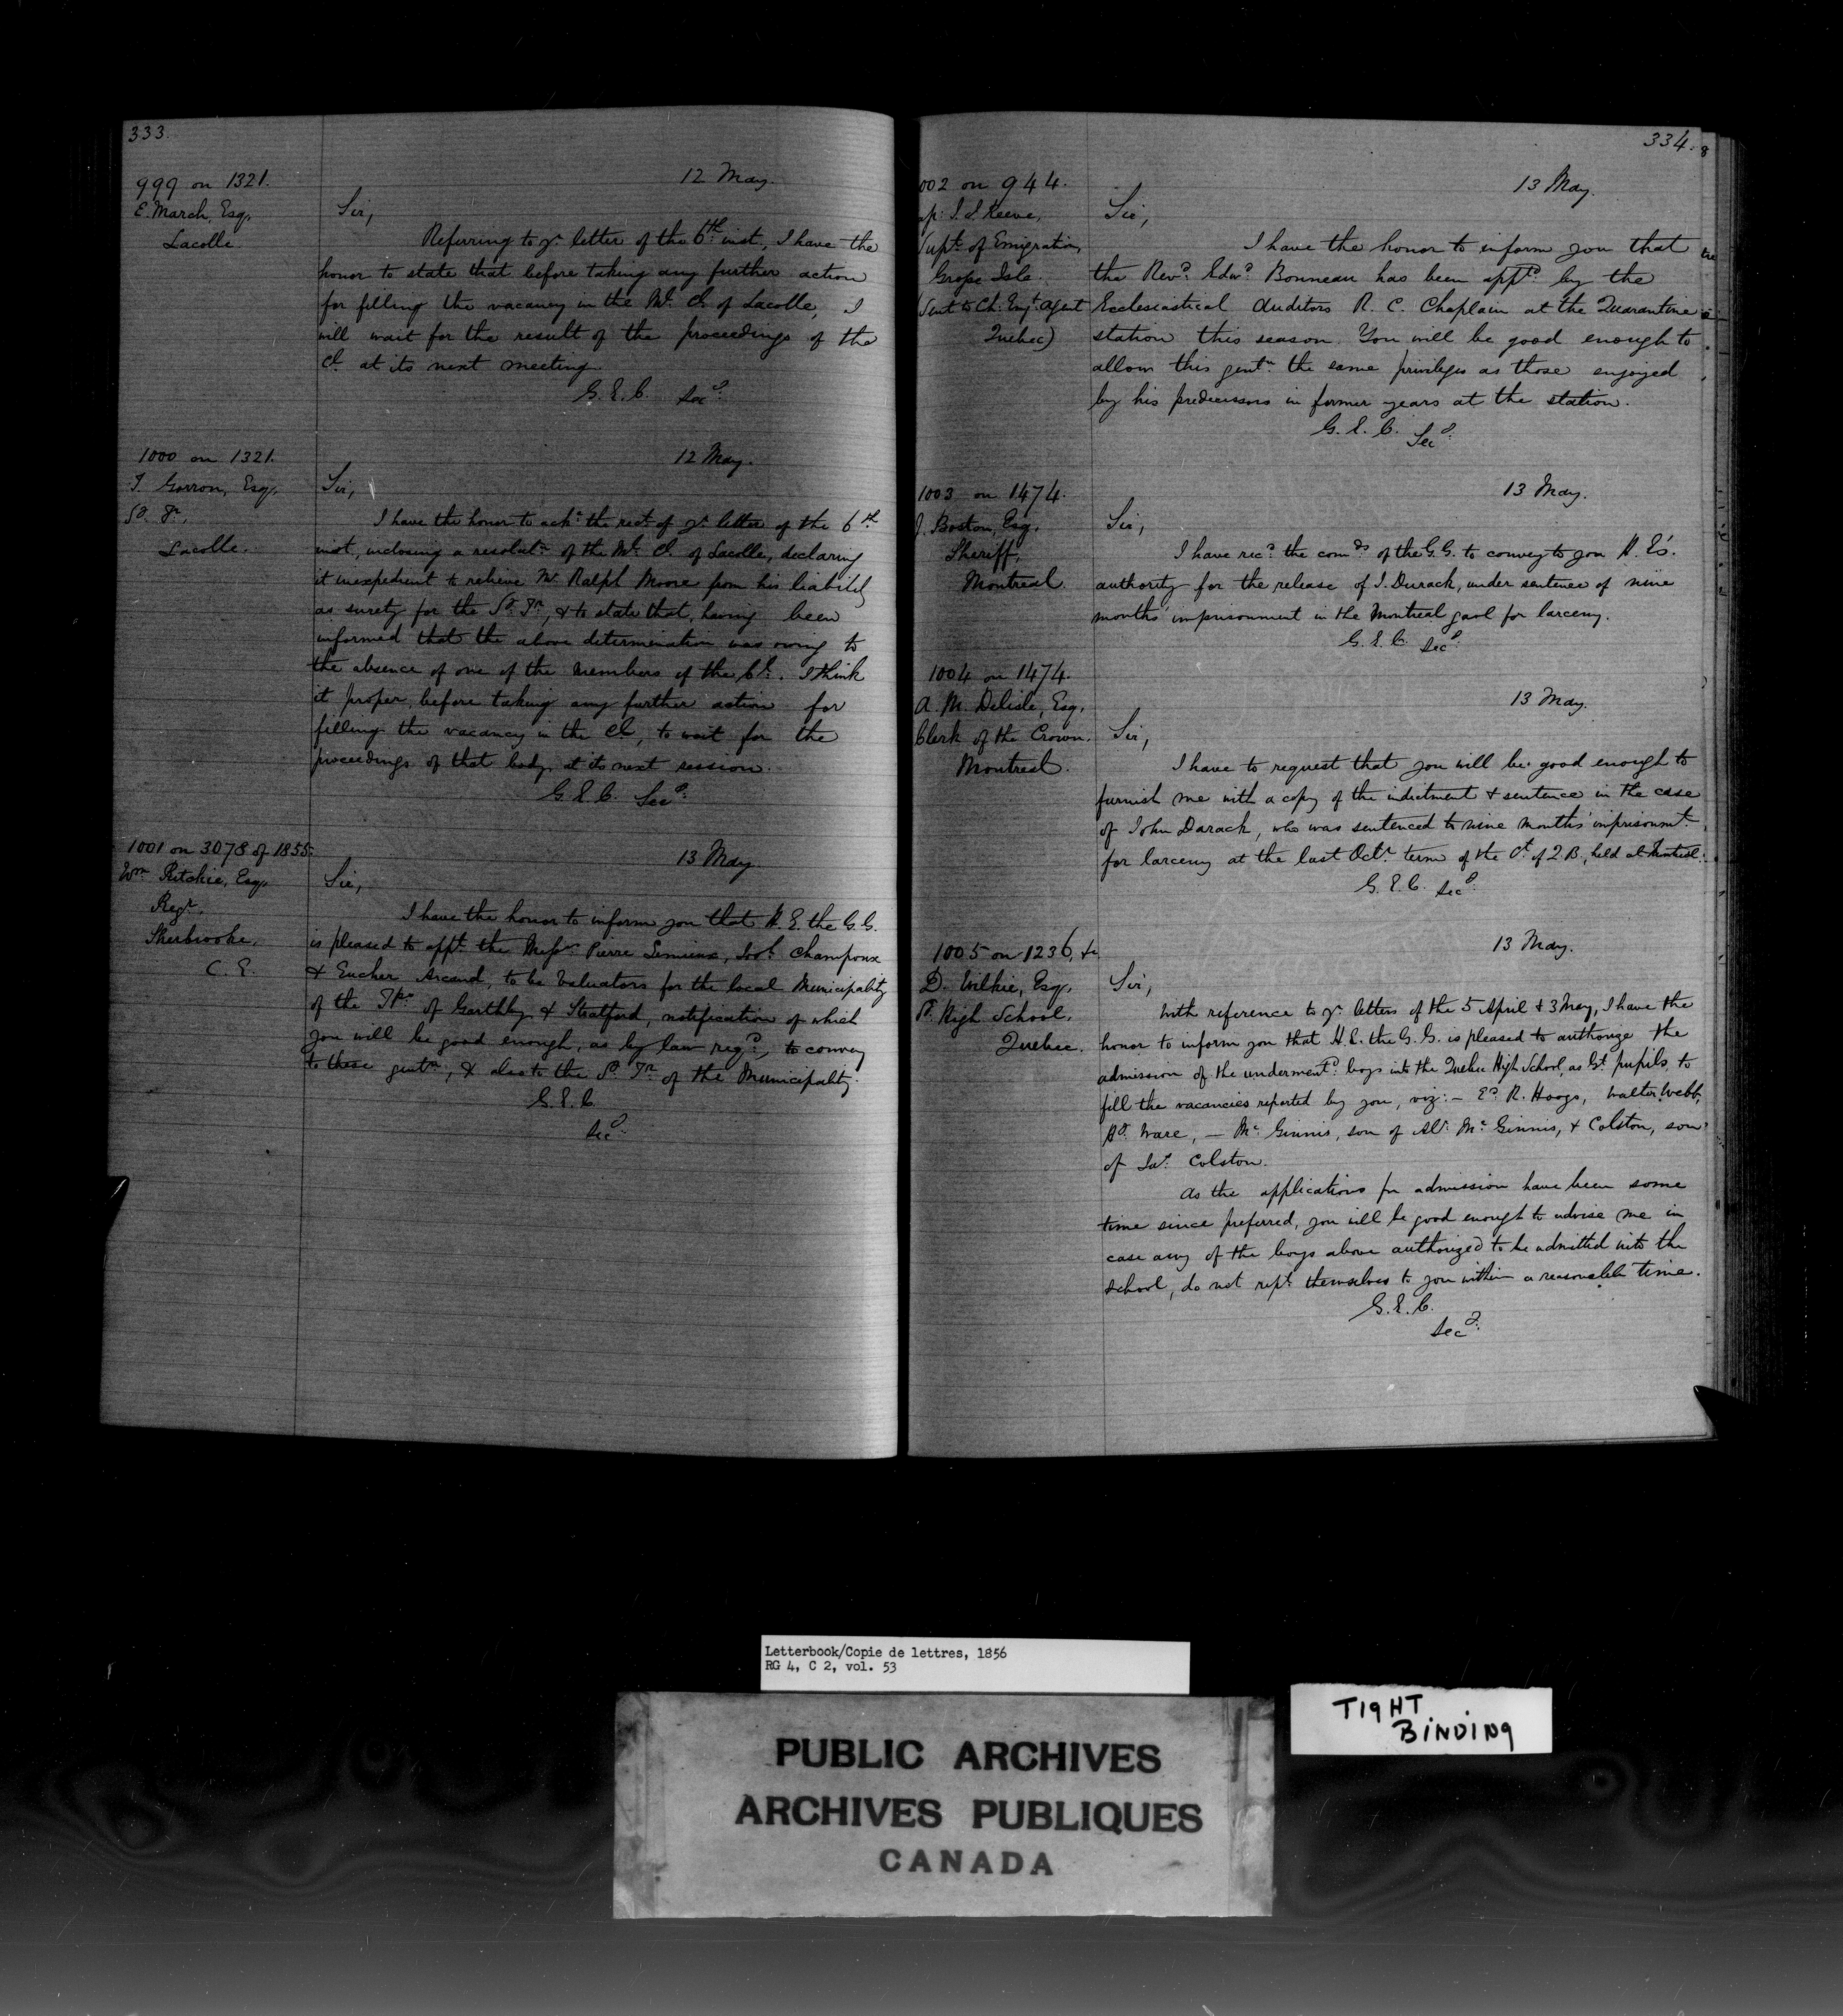 333.
999 on 1321.
E. March, Esq,
Lacolle
12 May.
Sir,
Referring to yr. letter of the 6th. inst, I have the
honor to state that before taking any further action
for filling the vacancy in the Ml. Cl. of Lacolle, I
will wait for the result of the proceedings of the
Cl. at its next meeting.
G. E. C. Secy.
1000 on 1321.
Esq,
Lacolle.
12 May.
Sir,
I have the honor to ackn. the rect. of yr. letter of the 6th
inst, inclosing a resolutn. of the Ml. Cl. of Lacolle, declaring
it inexpedient to relieve Mr. Ralph Moore from his liability
as surety for the Sy. Tr., & to state that, having been
informed that the above determination was owing to
the absence of one of the members of the Cl. I think
it proper, before taking any further action for
filling the vacancy in the Cl, to wait for the
proceedings of that body at its next session.
G. E. C. Secy.
1001 on 3078 of 1855.
Wm Ritchie, Esq,
Regr.
Sherbrooke,
C. E.
13 May.
Sir,
I have the honor to inform you that H. E. the G. G.
is pleased to appt. the Messrs. Pierre Lemieux, Champoux
& Eucher Arcand, to be Valuators for the local Municipality
of the Tps. of Garthby & Stratford, notification of which
you will be good enough, as by law reqd., to convey
to these gentn., & also to the Sy. Tr. of the Municipality.
G. E. C.
Secy.
334.
002 on 944.
Reeve,
Supt. of Emigration,
Grope Isle.
(Sent to Ch. Emt. agent
Quebec)
13 May.
Sir,
I have the honor to inform you that
the Revd. Edwd. Bonneau has been apptd. by the
Ecclesiastical Auditors R. C. Chaplain at the Quarantine
station this season. You will be good enough to
allow this gentn. the same privileges as those enjoyed
by his predecessors in former years at the station.
G. E. C. Secy.
1003 on 1474.
J. Boston, Esq.
Sheriff,
Montreal.
13 May.
Sir,
I have recd. the comds. of the G. G. to convey to you H. E's.
authority for the release of J. Durack, under sentence of nine
months' imprisonment in the Montreal gaol for larceny.
G. E. C. Secy.
1004 on 1474.
A. M. Delisle, Esq,
Clerk of the Crown.
Montreal.
13 May.
Sir,
I have to request that you will be good enough to
furnish me with a copy of the indictment & sentence in the case
of John Darack, who was sentenced to nine months' imprisonmt.
for larceny at the last Octr. term of the Ct. of Q B., held at Montreal.
G. E. C. Secy.
1005 on 1236, &c
D. Wilkie, Esq,
High School,
Quebec.
13 May.
Sir,
With reference to yr. letters of the 5 April & 3 May, I have the
honor to inform you that H. E. the G. G. is pleased to authorize the
admission of the undermentd. boys into the Quebec High School, as Gt. pupils, to
fill the vacancies reported by you, viz:- Ed. R. Hoogs, Walter Webb,
Hy. Ware, — Mc Ginnis, son of Alr. Mc Ginnis, & Colston, son
of Jas. Colston.
As the applications for admission have been some
time since preferred, you will be good enough to advise me in
case any of the boys above authorized to be admitted into the
school, do not rept. themselves to you within a reasonable time.
G. E. C.
Secy.
Letterbook/Copie de lettres, 1856
RG 4, C 2, vol. 53
TIGHT
BINDING
PUBLIC ARCHIVES
ARCHIVES PUBLIQUES
CANADA